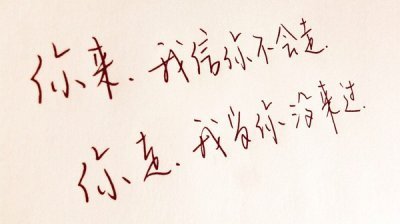 你来.我信你不会走.
你走.我当你没来过.